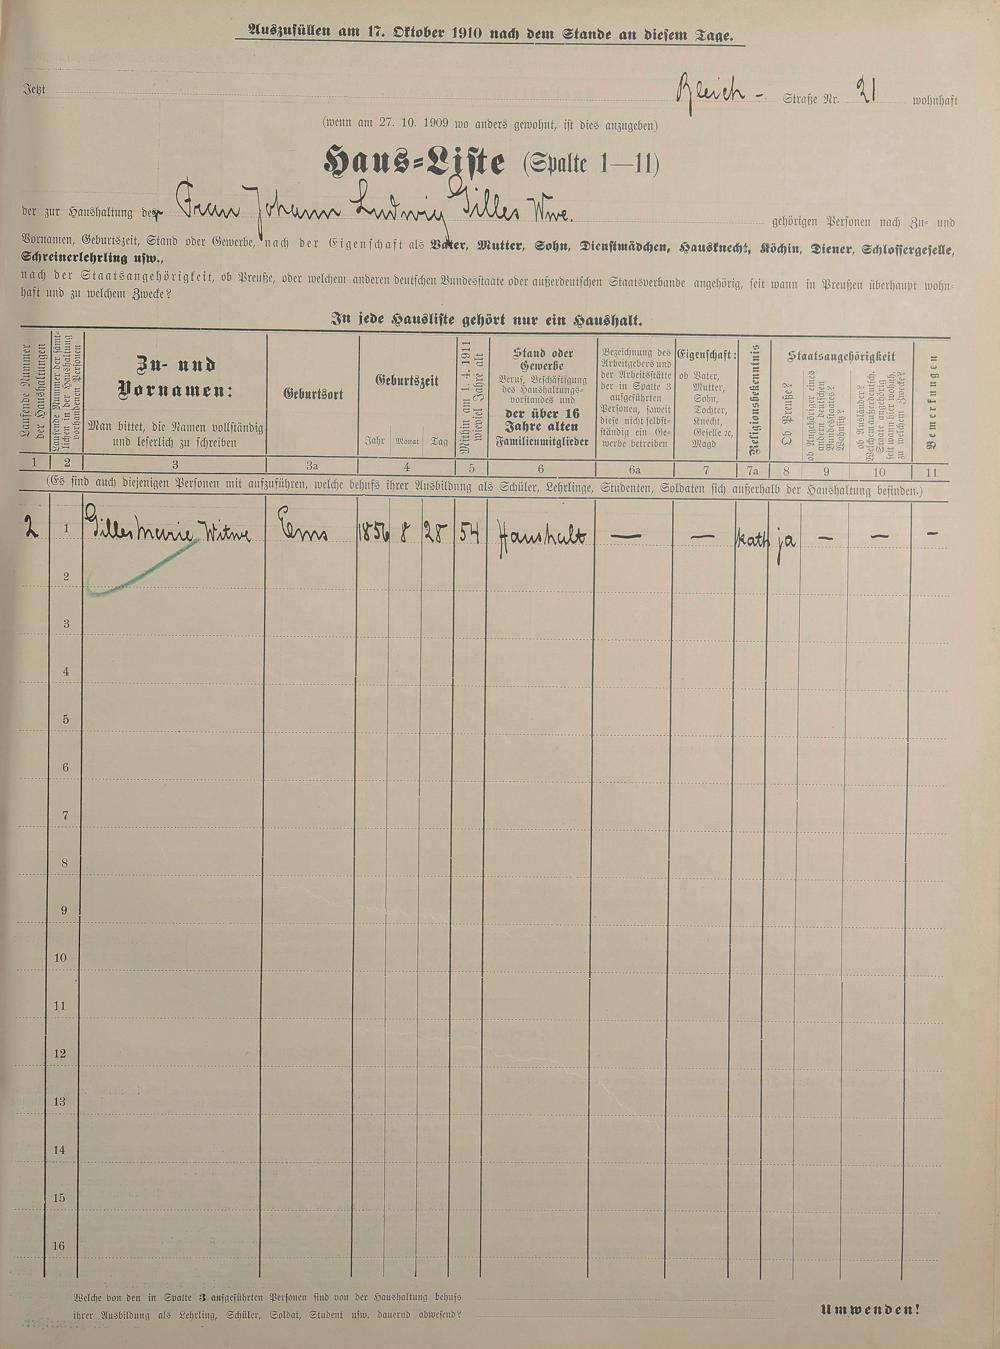 Auszufüllen am 17. Oktober 1910 nach dem Stande an diesem Tage.
Jetzt Bleich - Straße Nr. 21 wohnhaft
(wenn am 27. 10. 1909 wo anders gewohnt, ist dies anzugeben)
Haus-Liste (Spalte 1—11)
der zur Haushaltung der Frau Johann Ludwig Gilles Wwe. gehörigen Personen nach Zu- und
Vornamen, Geburtszeit, Stand oder Gewerbe, nach der Eigenschaft als Vater, Mutter, Sohn, Dienstmädchen, Hausknecht, Köchin, Diener, Schlossergeselle,
Schreinerlehrling usw.,
nach der Staatsangehörigkeit, ob Preuße, oder welchem anderen deutschen Bundesstaate oder außerdeutschen Staatsverbande angehörig, seit wann in Preußen überhaupt wohn-
haft und zu welchem Zwecke?
In jede Hausliste gehört nur ein Haushalt.
Laufende Nummer
der Haushaltungen
Laufende Nummer der sämt-
lichen in der Haushaltung
vorhandenen Personen
Zu- und
Vornamen:
Man bittet, die Namen vollständig
und leserlich zu schreiben
Geburtsort
Geburtszeit
Jahr Monat Tag
Mithin am 1. 4. 1911
wieviel Jahre alt
Stand oder
Gewerbe
Beruf, Beschäftigung
des Haushaltungs-
vorstandes und
der über 16
Jahre alten
Familienmitglieder
Bezeichnung des
Arbeitgebers und
der Arbeitsstätte
der in Spalte 3
aufgeführten
Personen, soweit
diese nicht selbst-
ständig ein Ge-
werbe betreiben
Eigenschaft:
ob Vater,
Mutter,
Sohn,
Tochter,
Knecht,
Geselle ec,
Magd
Religionsbekenntnis
Staatsangehörigkeit
Ob Preuße?
ob Angehöriger eines
andern deutschen
Bundesstaates?
Wohnsitz?
ob Ausländer?
Welchem außerdeutsch.
Staate angehörig
seit wann hier wohnh.
zu welchem Zwecke?
Bemerkungen
1 2 3 3a 4 5 6 6a 7 7a 8 9 10 11
(Es sind auch diejenigen Personen mit aufzuführen, welche behufs ihrer Ausbildung als Schüler, Lehrlinge, Studenten, Soldaten sich außerhalb der Haushaltung befinden.)
2 1 Gilles Marie, Witwe Ems 1856 8 28 54 Haushalt — — kath ja — — —
2
3
4
5
6
7
8
9
10
11
12
13
14
15
16
Welche von den in Spalte 3 aufgeführten Personen sind von der Haushaltung behufs
ihrer Ausbildung als Lehrling, Schüler, Soldat, Student usw. dauernd abwesend?
Umwenden!